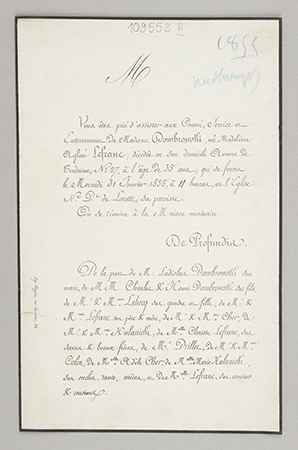 109553 III
1855
M
Vous êtes prié d'assister aux Convoi, Service et
Enterrement de Madame Dombrowski, née Madeleine
Aglaé Lefranc, décédée en son domicile Avenue de
Trudaine, N.º 27, à l'âge de 35 ans; qui se feront
le Mercredi 31 Janvier 1855, à 11 heures, en l'Église
N.e D.e de Lorette, sa paroisse.
On se réunira à la Maison mortuaire.
De Profundis
De la part de M.r Ladislas Dombrowski son
mari, de M.M. Charles & Henri Dombrowski ses fils
de M.r & M.me Lehray ses gendre et fille, de M.r &
M.me Lefranc ses père & mère, de M.r & M.me Cher, de
M.r & M.me Kulanicki, de M.elle Lefranc, ses
sœurs & beaux frères, de M.r Drilles, de M.r & M.me
Colin, de M.elle Adèle Cher, de M.elle Maria Kulanicki,
ses oncles, tante, nièces, et des M.elles Lefranc, ses cousins
& cousines.